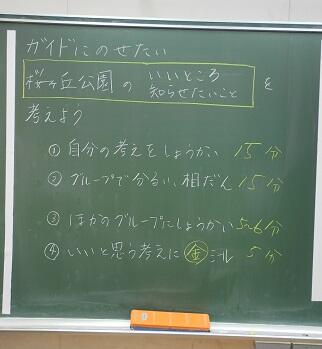 ガイドにのせたい
桜ヶ丘公園の いいところ を
知らせたいこと
考えよう
① 自分の考えをしょうかい 15分
② グループで分るい、相だん 15分
③ ほかのグループにしょうかい 5~6分
④ いいと思う考えに 金 シール 5分